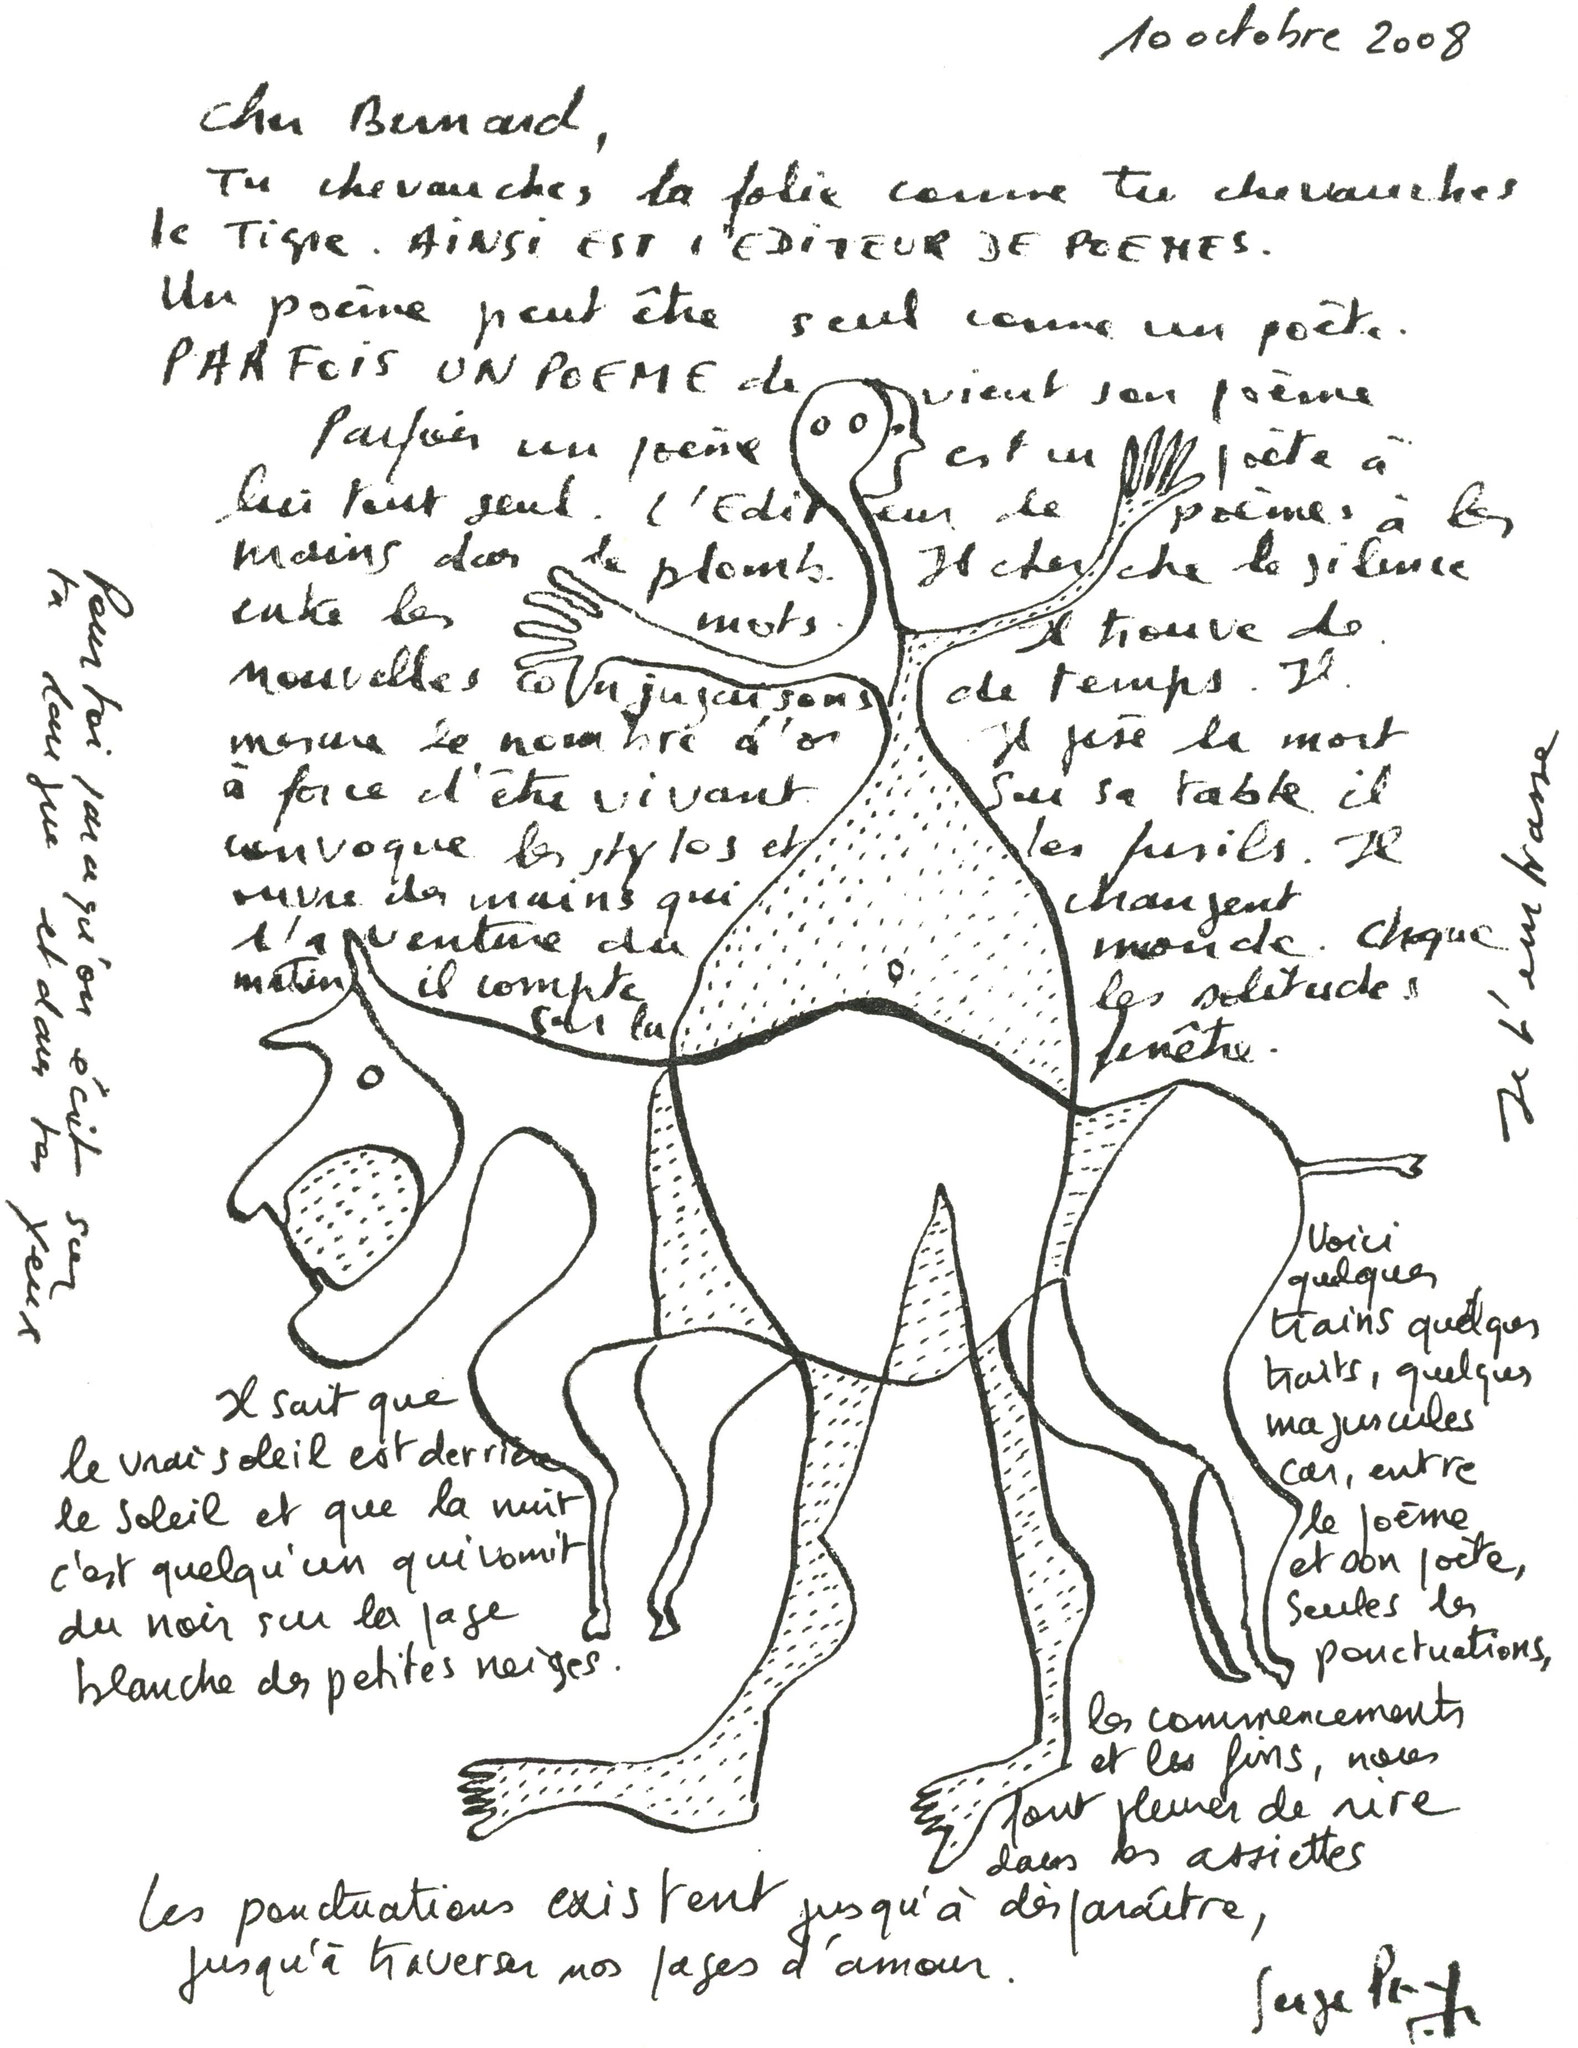 10 octobre 2008
Cher Bernard,
Tu chevauches la folie comme tu chevauches
le Tigre. AINSI EST L'EDITEUR DE POEMES.
Un poème peut être seul comme un poète.
PARFOIS UN POEME devient son poème
Parfois un poème est un poète à
lui tout seul. L'Editeur de poèmes à les
mains dans le plomb. Il cherche le silence
entre les mots. Il trouve de
nouvelles conjugaisons de temps. Il
mesure le nombre d'or Il pèse la mort
à force d'être vivant Sur sa table il
convoque les stylos et les fusils. Il
ouvre des mains qui changent
l'aventure du monde. Chaque
matin il compte les solitudes
sur la fenêtre.
Pour toi parce qu'on écrit sur
ta langue et dans tes yeux
Je t'embrasse
Il sait que
le vrai soleil est derrière
le soleil et que la nuit
c'est quelqu'un qui vomit
du noir sur la page
blanche des petites neiges.
Voici
quelques
trains quelques
traits, quelques
majuscules
car, entre
le poème
et son poète,
seules les
ponctuations,
les commencements
et les fins, nous
font pleurer de rire
dans nos assiettes
Les ponctuations existent jusqu'à disparaître,
jusqu'à traverser nos pages d'amour.
Serge Pey